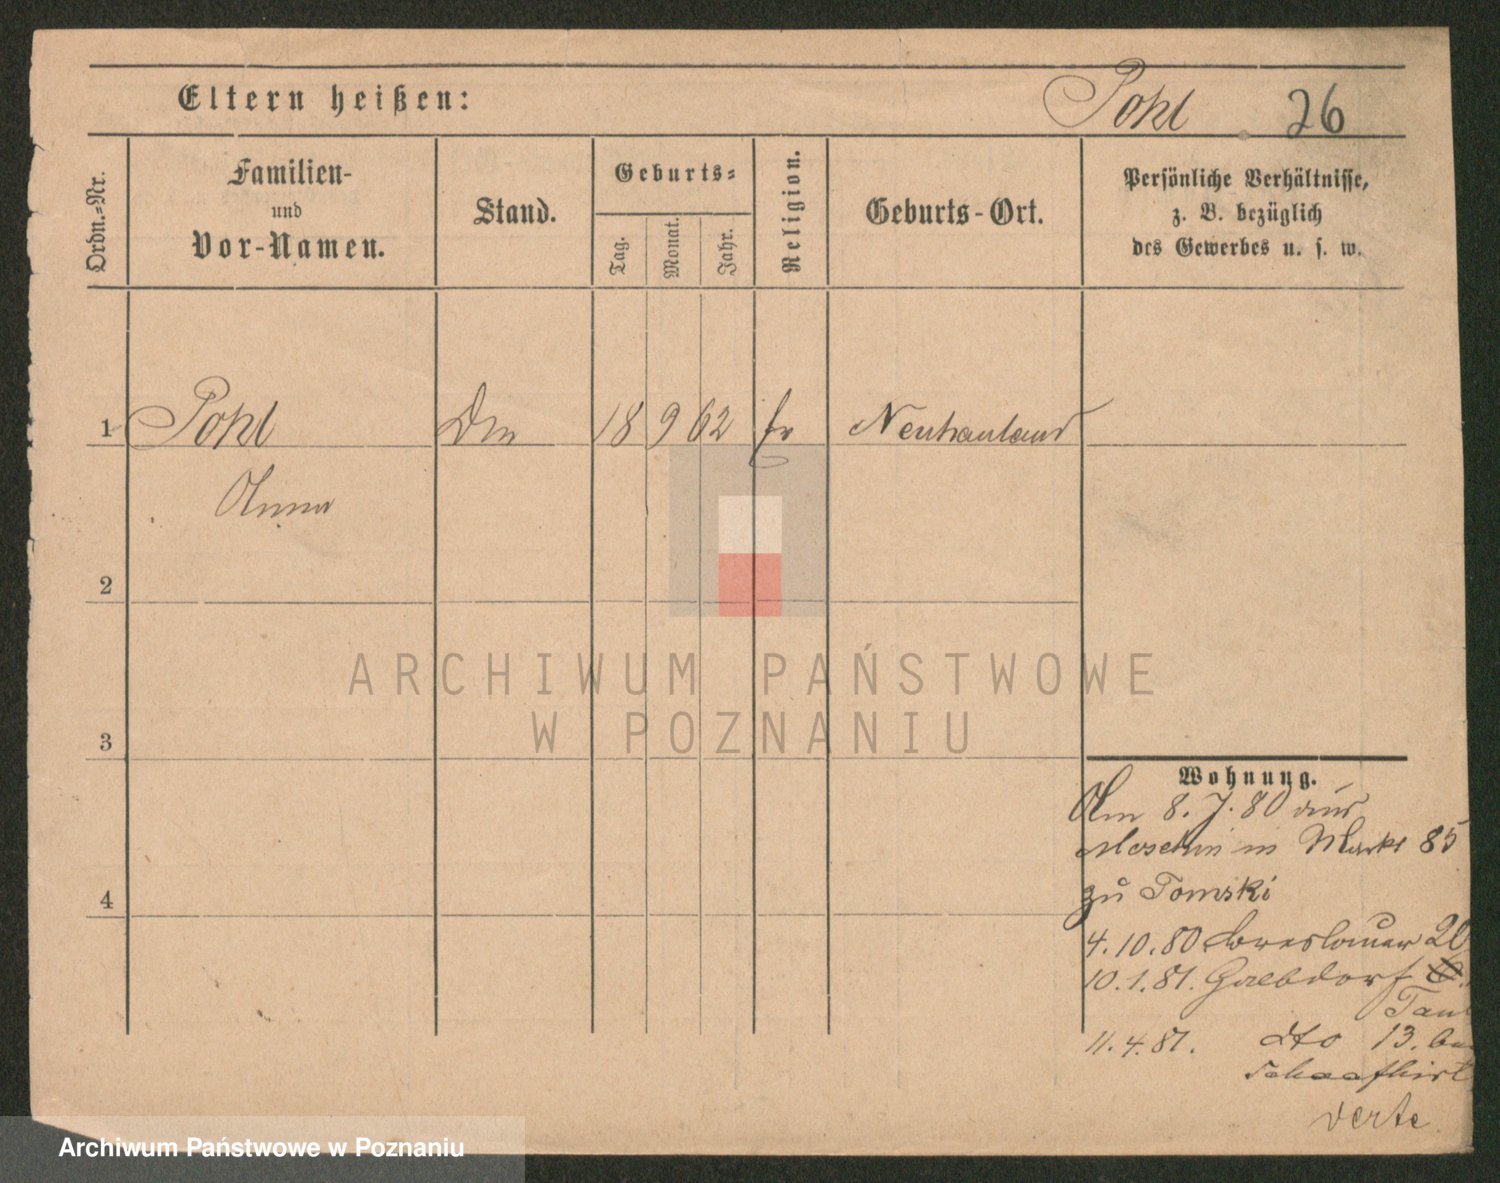 Eltern heißen:
Pohl 26
Ordn.-Nr.
Familien-
und
Vor-Namen.
Stand.
Geburts-
Tag.
Monat.
Jahr.
Religion.
Geburts-Ort.
Persönliche Verhältnisse,
z. B. bezüglich
des Gewerbes u. s. w.
1 Pohl Dm 18 9 62 Neuhauland
Anna
2
3
4
Wohnung.
Am 8. 7. 80 aus
Moschin in Markt 85
zu Tomski
4.10.80 Breslauer 20
10.1.81.
11.4.81. dto 13.
verte
ARCHIWUM PAŃSTWOWE
W POZNANIU
Archiwum Państwowe w Poznaniu